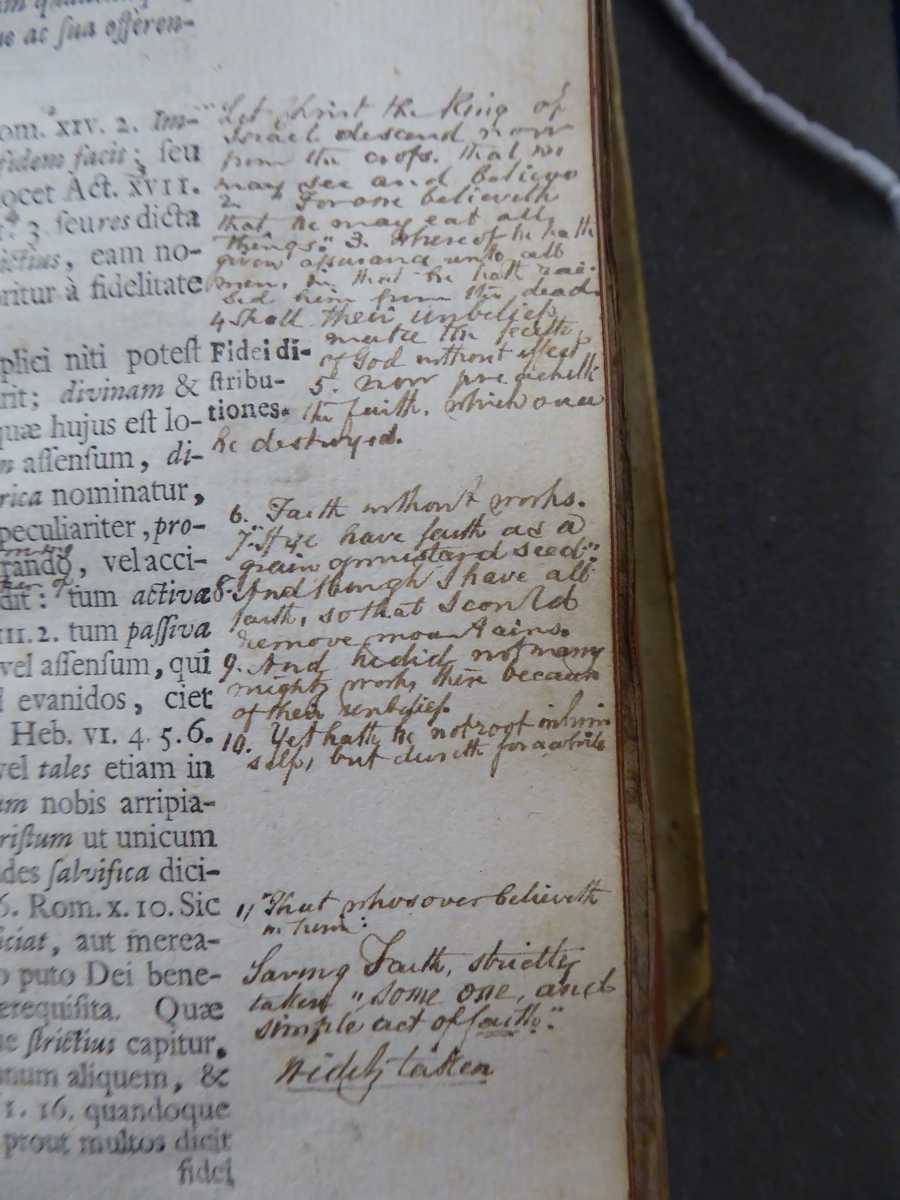 ue ac sua offeren-
om. XIV. 2. Im-
fidem facit; seu
ocet Act. XVII.
3 seu res dicta
ictius, eam no-
oritur à fidelitate
plici niti potest
rit; divinam &
quæ hujus est lo-
assensum, di-
rica nominatur,
peculiariter, pro-
rando, vel acci-
dit: tum activa
III. 2. tum passiva
vel assensum, qui
evanidos, ciet
Heb. VI. 4. 5. 6.
vel tales etiam in
um nobis arripia-
ristum ut unicum
ides salvifica dici-
6. Rom. X. 10. Sic
iciat, aut merea-
o puto Dei bene-
erequisita. Quæ
ue strictius capitur,
unum aliquem, &
1. 16. quandoque
prout multos dicit
fidei
Fidei di-
stribu-
tiones.
"Let Christ the King of
Israel descend now
from the cross. that we
may see and believe
2 " For one believeth
that he may eat all
things." 3. Whereof he hath
given assurance unto all
men, in that he hath rai-
sed him from the dead
4 Shall their unbelief
make the faith
of God without effect
5. now preacheth
the faith. which once
he destroyed.
6. Faith without works.
7. "If ye have faith as a
grain of mustard seed".
8. And though I have all
faith, so that I could
remove mountains.
9. And he did not many
mighty works there because
of their unbelief.
10. Yet hath he not root in him
self, but dureth for a while
11 "That whosoever believeth
in him:
Saving Faith, strictly
taken "some one, and
simple act of faith".
Widely taken